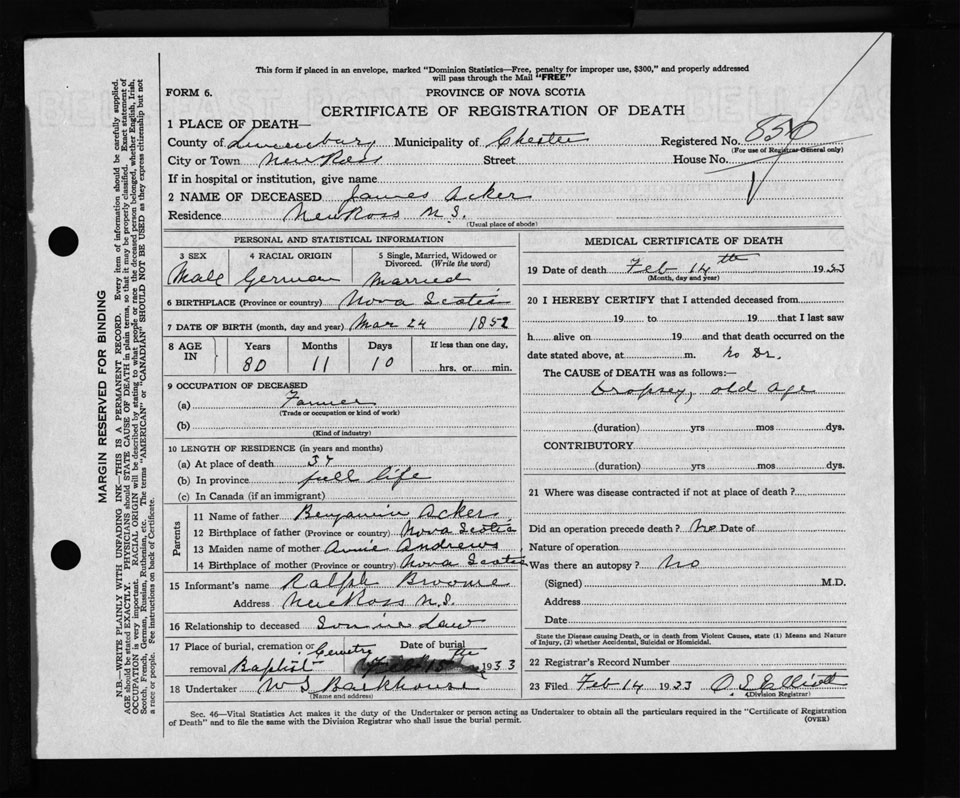 This form if placed in an envelope, marked "Dominion Statistics—Free, penalty for improper use, $300," and properly addressed
will pass through the Mail "FREE"
FORM 6.
PROVINCE OF NOVA SCOTIA
CERTIFICATE OF REGISTRATION OF DEATH
1 PLACE OF DEATH—
County of Lunenburg Municipality of Chester Registered No. 856
(For use of Registrar General only)
City or Town New Ross Street House No.
If in hospital or institution, give name
2 NAME OF DECEASED James Acker
Residence New Ross N.S.
(Usual place of abode)
PERSONAL AND STATISTICAL INFORMATION
3 SEX 4 RACIAL ORIGIN 5 Single, Married, Widowed or
Divorced. (Write the word)
Male German Married
6 BIRTHPLACE (Province or country) Nova Scotia
7 DATE OF BIRTH (month, day and year) Mar 24 1852
8 AGE IN Years Months Days If less than one day,
80 11 10 hrs. or min.
9 OCCUPATION OF DECEASED
(a) Farmer
(Trade or occupation or kind of work)
(b)
(Kind of industry)
10 LENGTH OF RESIDENCE (in years and months)
(a) At place of death
(b) In province full life
(c) In Canada (if an immigrant)
Parents
11 Name of father Benjamin Acker
12 Birthplace of father (Province or country) Nova Scotia
13 Maiden name of mother Annie Andrews
14 Birthplace of mother (Province or country) Nova Scotia
15 Informant's name Ralph Broome
Address New Ross N.S.
16 Relationship to deceased Son in Law
17 Place of burial, cremation or Cemetry Date of burial
removal Baptist Feb 15th 1933
18 Undertaker W S Barkhouse
(Name and address)
MEDICAL CERTIFICATE OF DEATH
19 Date of death Feb 14th 1933
(Month, day and year)
20 I HEREBY CERTIFY that I attended deceased from
19 to 19 that I last saw
h alive on 19 and that death occurred on the
date stated above, at m. no Dr.
The CAUSE of DEATH was as follows:—
Dropsey, old age
(duration) yrs mos dys.
CONTRIBUTORY
(duration) yrs mos dys.
21 Where was disease contracted if not at place of death ?
Did an operation precede death ? no Date of
Nature of operation
Was there an autopsy ? no
(Signed) M.D.
Address
Date
State the Disease causing Death, or in death from Violent Causes, state (1) Means and Nature
of Injury, (2) whether Accidental, Suicidal or Homicidal.
22 Registrar's Record Number
23 Filed Feb 14 1933 O. S. Elliott
(Division Registrar)
Sec. 46—Vital Statistics Act makes it the duty of the Undertaker or person acting as Undertaker to obtain all the particulars required in the "Certificate of Registration
of Death" and to file same with the Division Registrar who shall issue the burial permit.
(OVER)
MARGIN RESERVED FOR BINDING
N.B.—WRITE PLAINLY WITH UNFADING INK—THIS IS A PERMANENT RECORD. Every item of information should be carefully supplied.
AGE should be stated EXACTLY. PHYSICIANS should STATE CAUSE OF DEATH in plain terms, so that it may be properly classified. Exact statement of
OCCUPATION is very important. RACIAL ORIGIN will be described by stating to what people or race the deceased person belonged, whether English, Irish,
Scotch, French, German, Russian, Ruthenian, etc. The terms "AMERICAN" or "CANADIAN" SHOULD NOT BE USED as they express citizenship but not
a race or people. See instructions on back of Certificate.